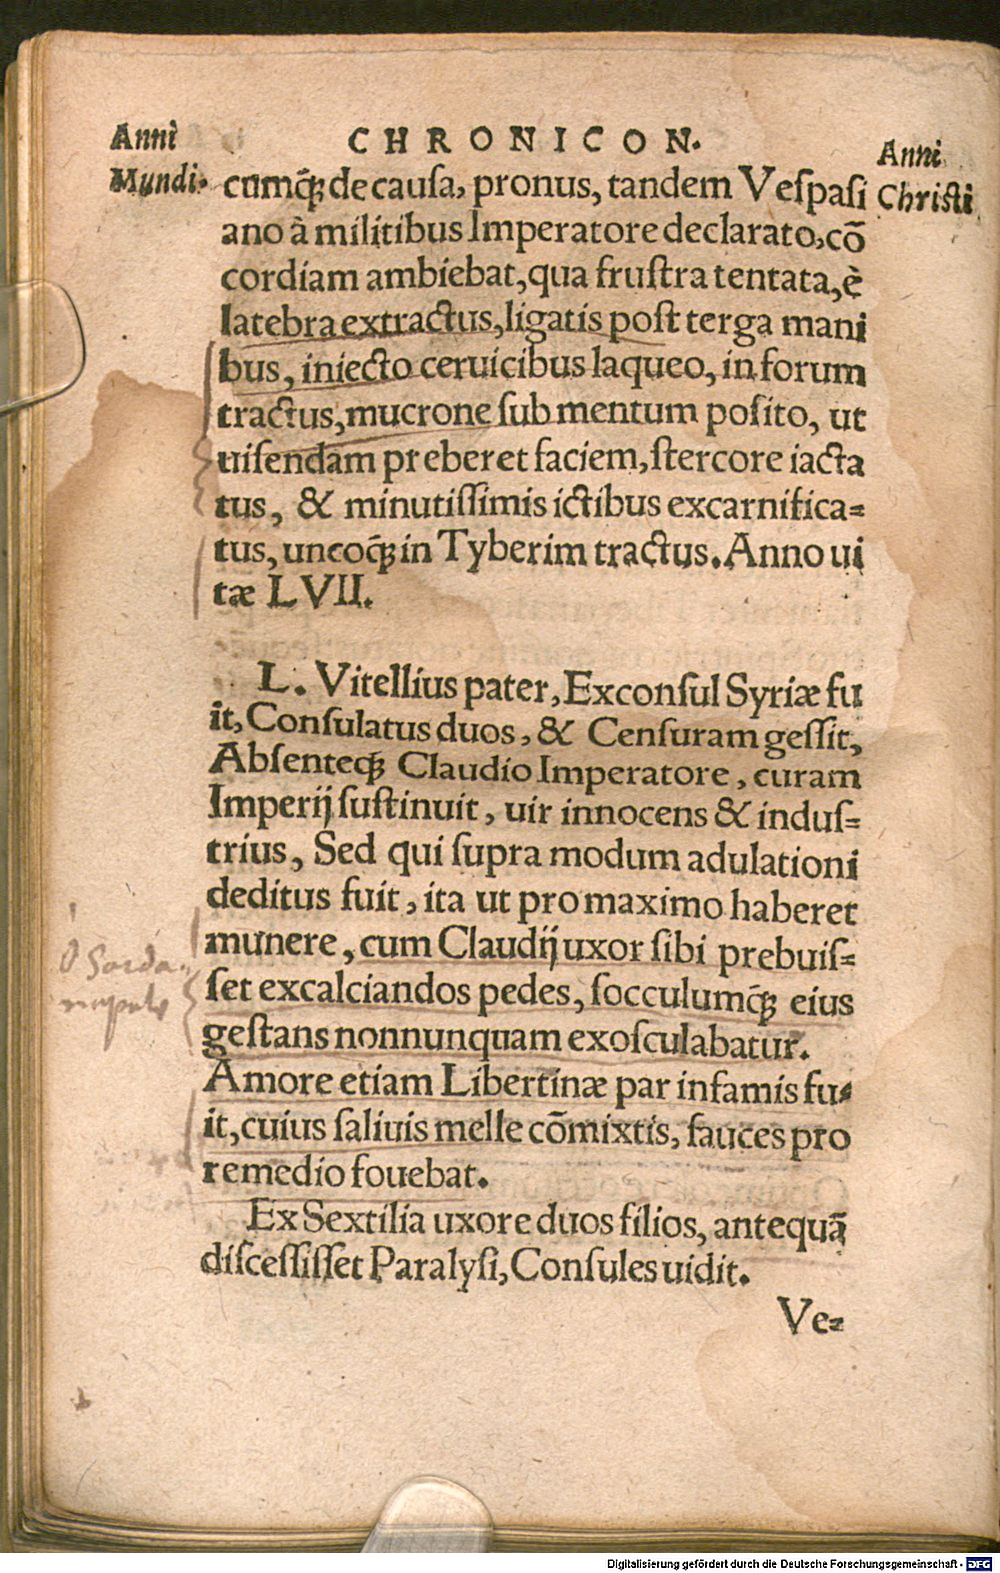 Anni
Mundi.
CHRONICON.
Anni
Christi
cumq́ꝫ de causa, pronus, tandem Vespasi
ano à militibus Imperatore declarato, cō
cordiam ambiebat, qua frustra tentata, è
latebra extractus, ligatis post terga mani
bus, iniecto ceruicibus laqueo, in forum
tractus, mucrone sub mentum posito, ut
uisendam preberet faciem, stercore iacta
tus, & minutissimis ictibus excarnifica=
tus, uncoq́ꝫ in Tyberim tractus. Anno ui
tæ LVII.
L. Vitellius pater, Exconsul Syriæ fu
it, Consulatus duos, & Censuram gessit,
Absenteq́ꝫ Claudio Imperatore, curam
Imperij sustinuit, uir innocens & indus=
trius, Sed qui supra modum adulationi
deditus fuit, ita ut pro maximo haberet
munere, cum Claudij uxor sibi prebuis=
set excalciandos pedes, socculumq́ꝫ eius
gestans nonnunquam exosculabatur.
Amore etiam Libertinæ par infamis fu=
it, cuius saliuis melle cōmixtis, fauces pro
remedio fouebat.
Ex Sextilia uxore duos filios, antequā
discessisset Paralysi, Consules uidit.
Ve=
Digitalisierung gefördert durch die Deutsche Forschungsgemeinschaft - DFG